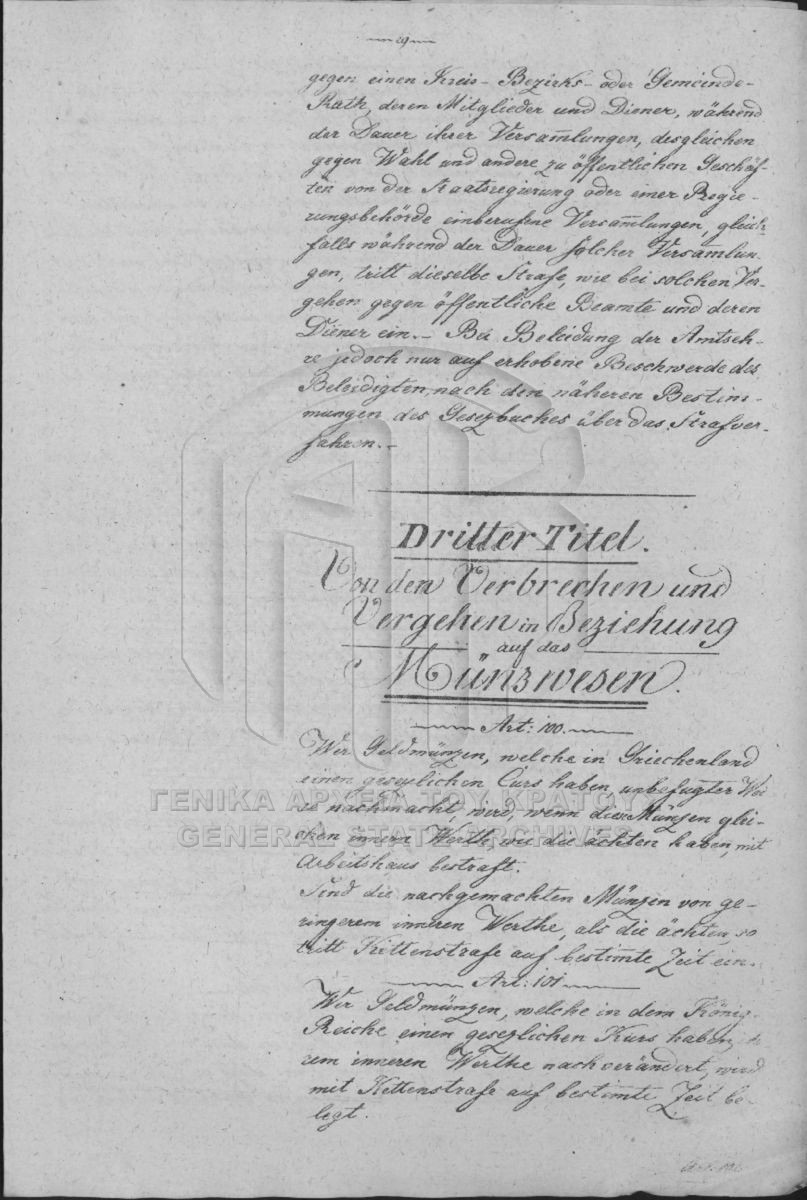 29
gegen einen Kreis- Bezirks- oder Gemeinde-
Rath, deren Mitglieder und Diener, während
der Dauer ihrer Versam̄lungen, desgleichen
gegen Wahl und andere zu öffentlichen Geschäf-
ten von der Staatsregierung oder einer Regie-
rungsbehörde einberufene Versam̄lungen, gleich-
falls während der Dauer solcher Versamlun-
gen, tritt dieselbe Strafe, wie bei solchen Ver-
gehen gegen öffentliche Beamte und deren
Diener ein. – Bei Beleidung der Amtseh-
re jedoch nur auf erhobene Beschwerde des
Beleidigten, nach den näheren Bestim-
mungen des Gesezbuches über das Strafver-
fahren. –
Dritter Titel.
Von den Verbrechen und
Vergehen in Beziehung
auf das
Münzwesen.
Art: 100.
Wer Geldmünzen, welche in Griechenland
einen gesezlichen Curs haben, unbefugter Wei
se nachmacht, wird, wenn diese Münzen glei-
chen innern Werth wie die ächten haben, mit
Arbeitshaus bestraft.
Sind die nachgemachten Münzen von ge-
ringerem inneren Werthe, als die ächten, so
tritt Kettenstrafe auf bestim̄te Zeit ein.
Art: 101
Wer Geldmünzen, welche in dem König-
Reiche einen gesezlichen Kurs haben,
rem inneren Werthe nach verändert, wird
mit Kettenstrafe auf bestim̄te Zeit be-
legt.
ΓΕΝΙΚΑ ΑΡΧΕΙΑ ΤΟΥ ΚΡΑΤΟΥΣ
GENERAL STATE ARCHIVES